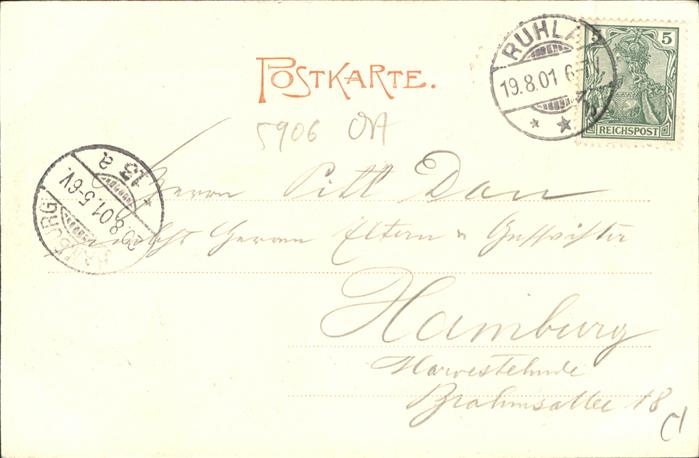 POSTKARTE.
RUHLA
19.8.01 6-7N
5
REICHSPOST
5906
HAMBURG
20.8.01.5-6V.
13 a
Herrn Pitt Dan
nebst Herren Eltern u Geschwister
Hamburg
Harvestehude
Brahmsallee 18